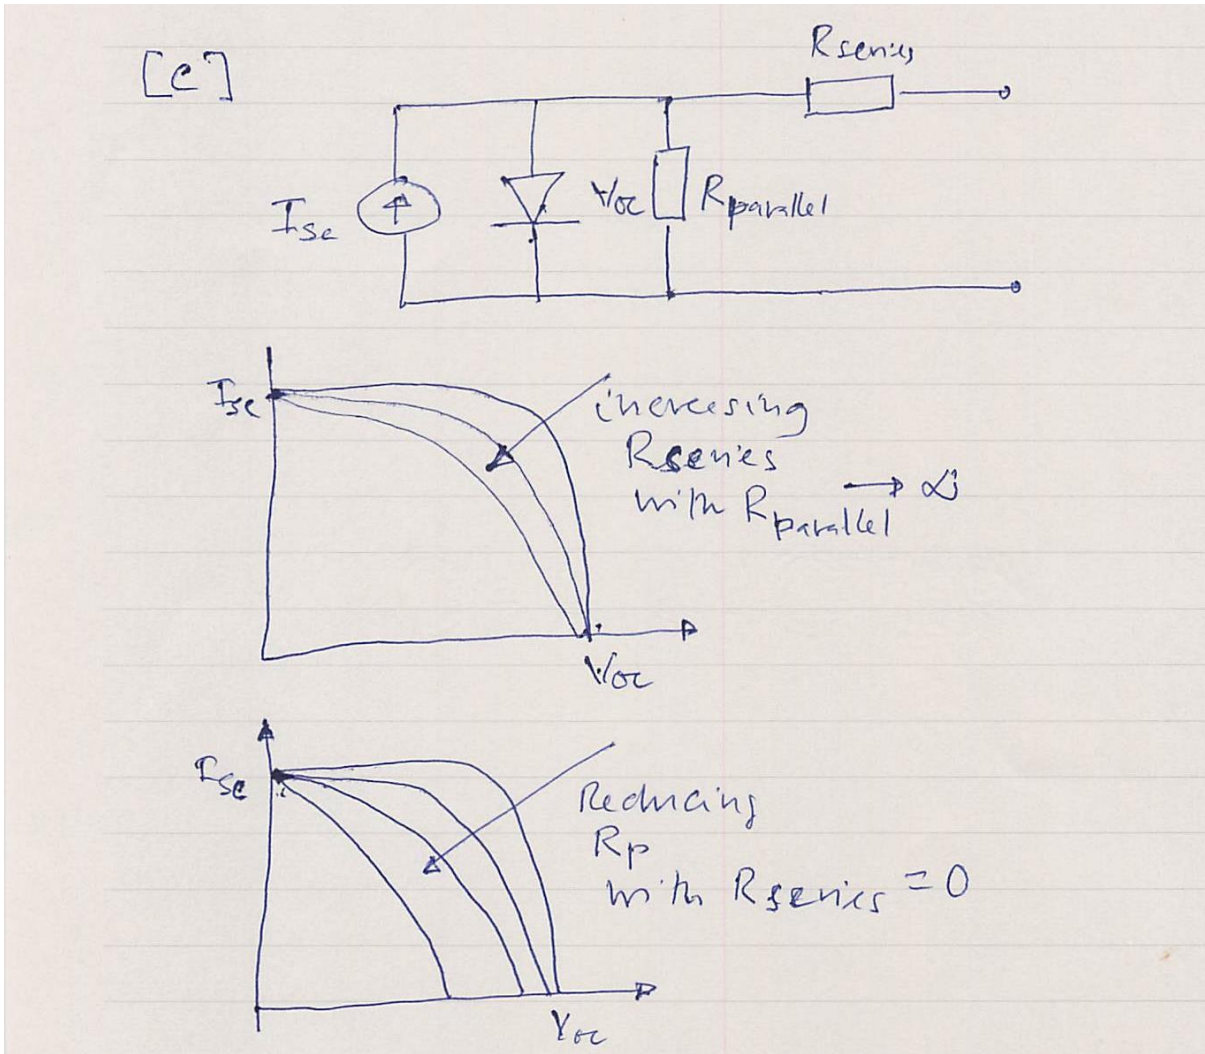 [c]
Rseries
Isc
Voc Rparallel
Isc
increasing
Rseries
with Rparallel → ∞
Voc
Isc
Reducing
Rp
with Rseries = 0
Voc